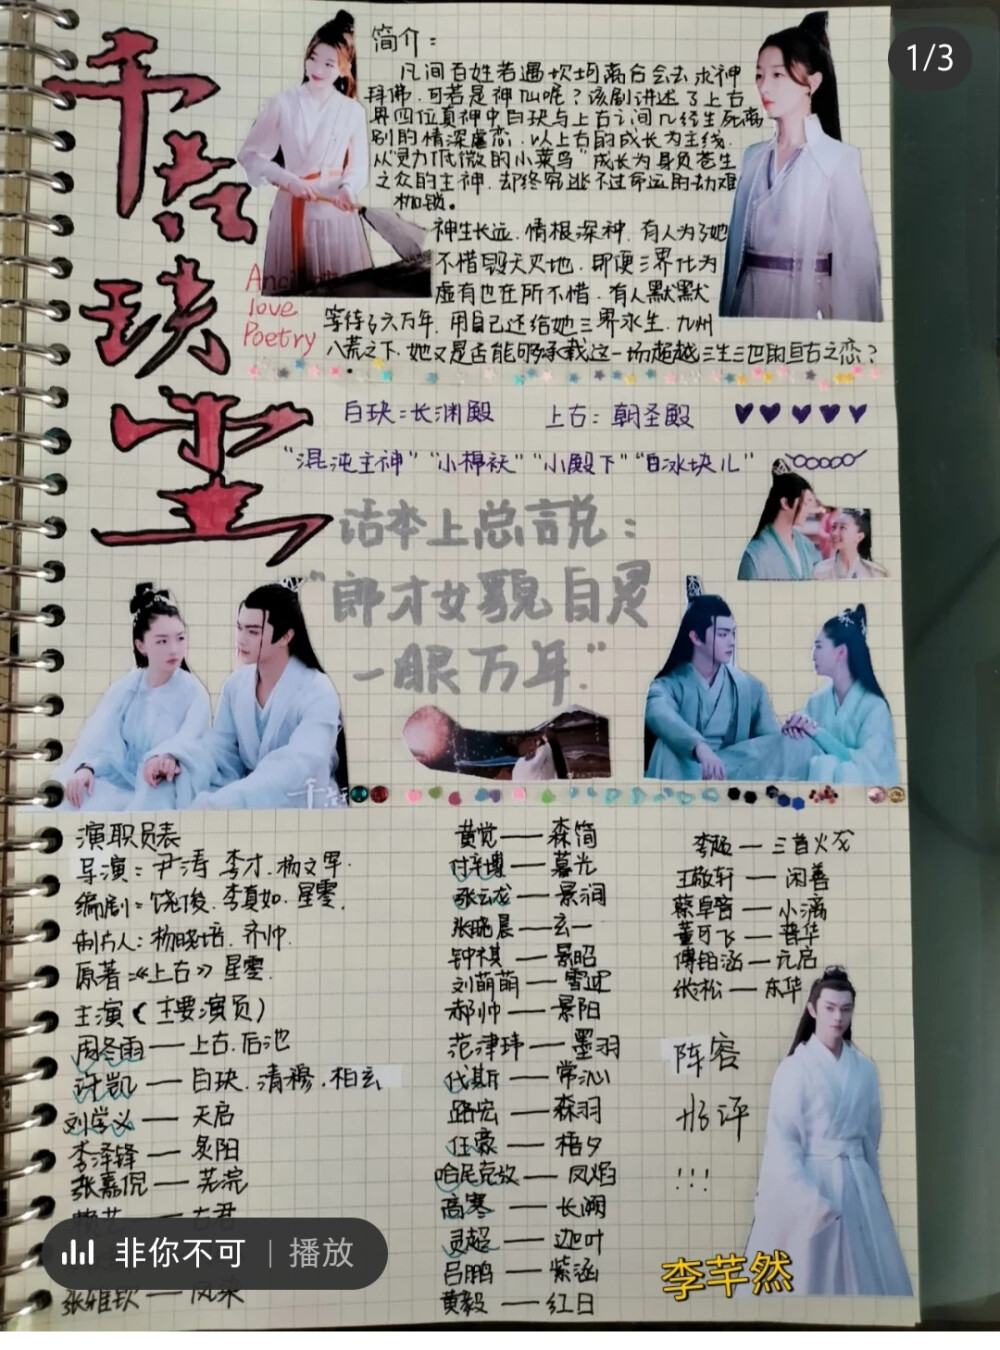 1/3
千古玦尘
Ancient love Poetry
简介：
凡间百姓若遇坎坷离合会去求神
拜佛.可若是神仙呢？该剧讲述了上古
界四位真神中白玦与上古之间几经生死离
别的情深虐恋.以上古的成长为主线.
从"灵力低微的小菜鸟"成长为身负苍生
之众的主神.却终究逃不过命运的劫难
枷锁。
神生长远.情根深种.有人为了她
不惜毁天灭地.即便三界化为
虚有也在所不惜.有人默默
等待了六万年.用自己还给她三界永生.九州
八荒之下.她又是否能够承载这一场超越三生三世的亘古之恋？
白玦：长渊殿 上古：朝圣殿
"混沌主神" "小棉袄" "小殿下" "白冰块儿"
话本上总言说：
"郎才女貌自是
一眼万年."
演职员表
导演：尹涛 李才.杨文军.
编剧：饶俊.李真如.星零.
制片人：杨晓培.齐帅.
原著：《上古》星零.
主演（主要演员）
周冬雨——上古.后池
许凯——白玦.清穆.柏玄
刘学义——天启
李泽锋——炙阳
张嘉倪——芜浣
古君
张雅钦——凤染
黄觉——森简
付辛博——暮光
张云龙——景涧
张晓晨——玄一
钟祺——景昭
刘萌萌——雪迎
郝帅——景阳
范津玮——墨羽
代斯——常沁
路宏——森羽
任豪——梧夕
哈尼克孜——凤焰
高寒——长溯
灵超——迦叶
吕鹏——紫涵
黄毅——红日
李强—三首火龙
王敬轩—闲善
蔡卓音—小漓
董可飞—普华
傅铂涵—元启
张松—东华
阵容
好评
!!!
李芊然
非你不可 | 播放